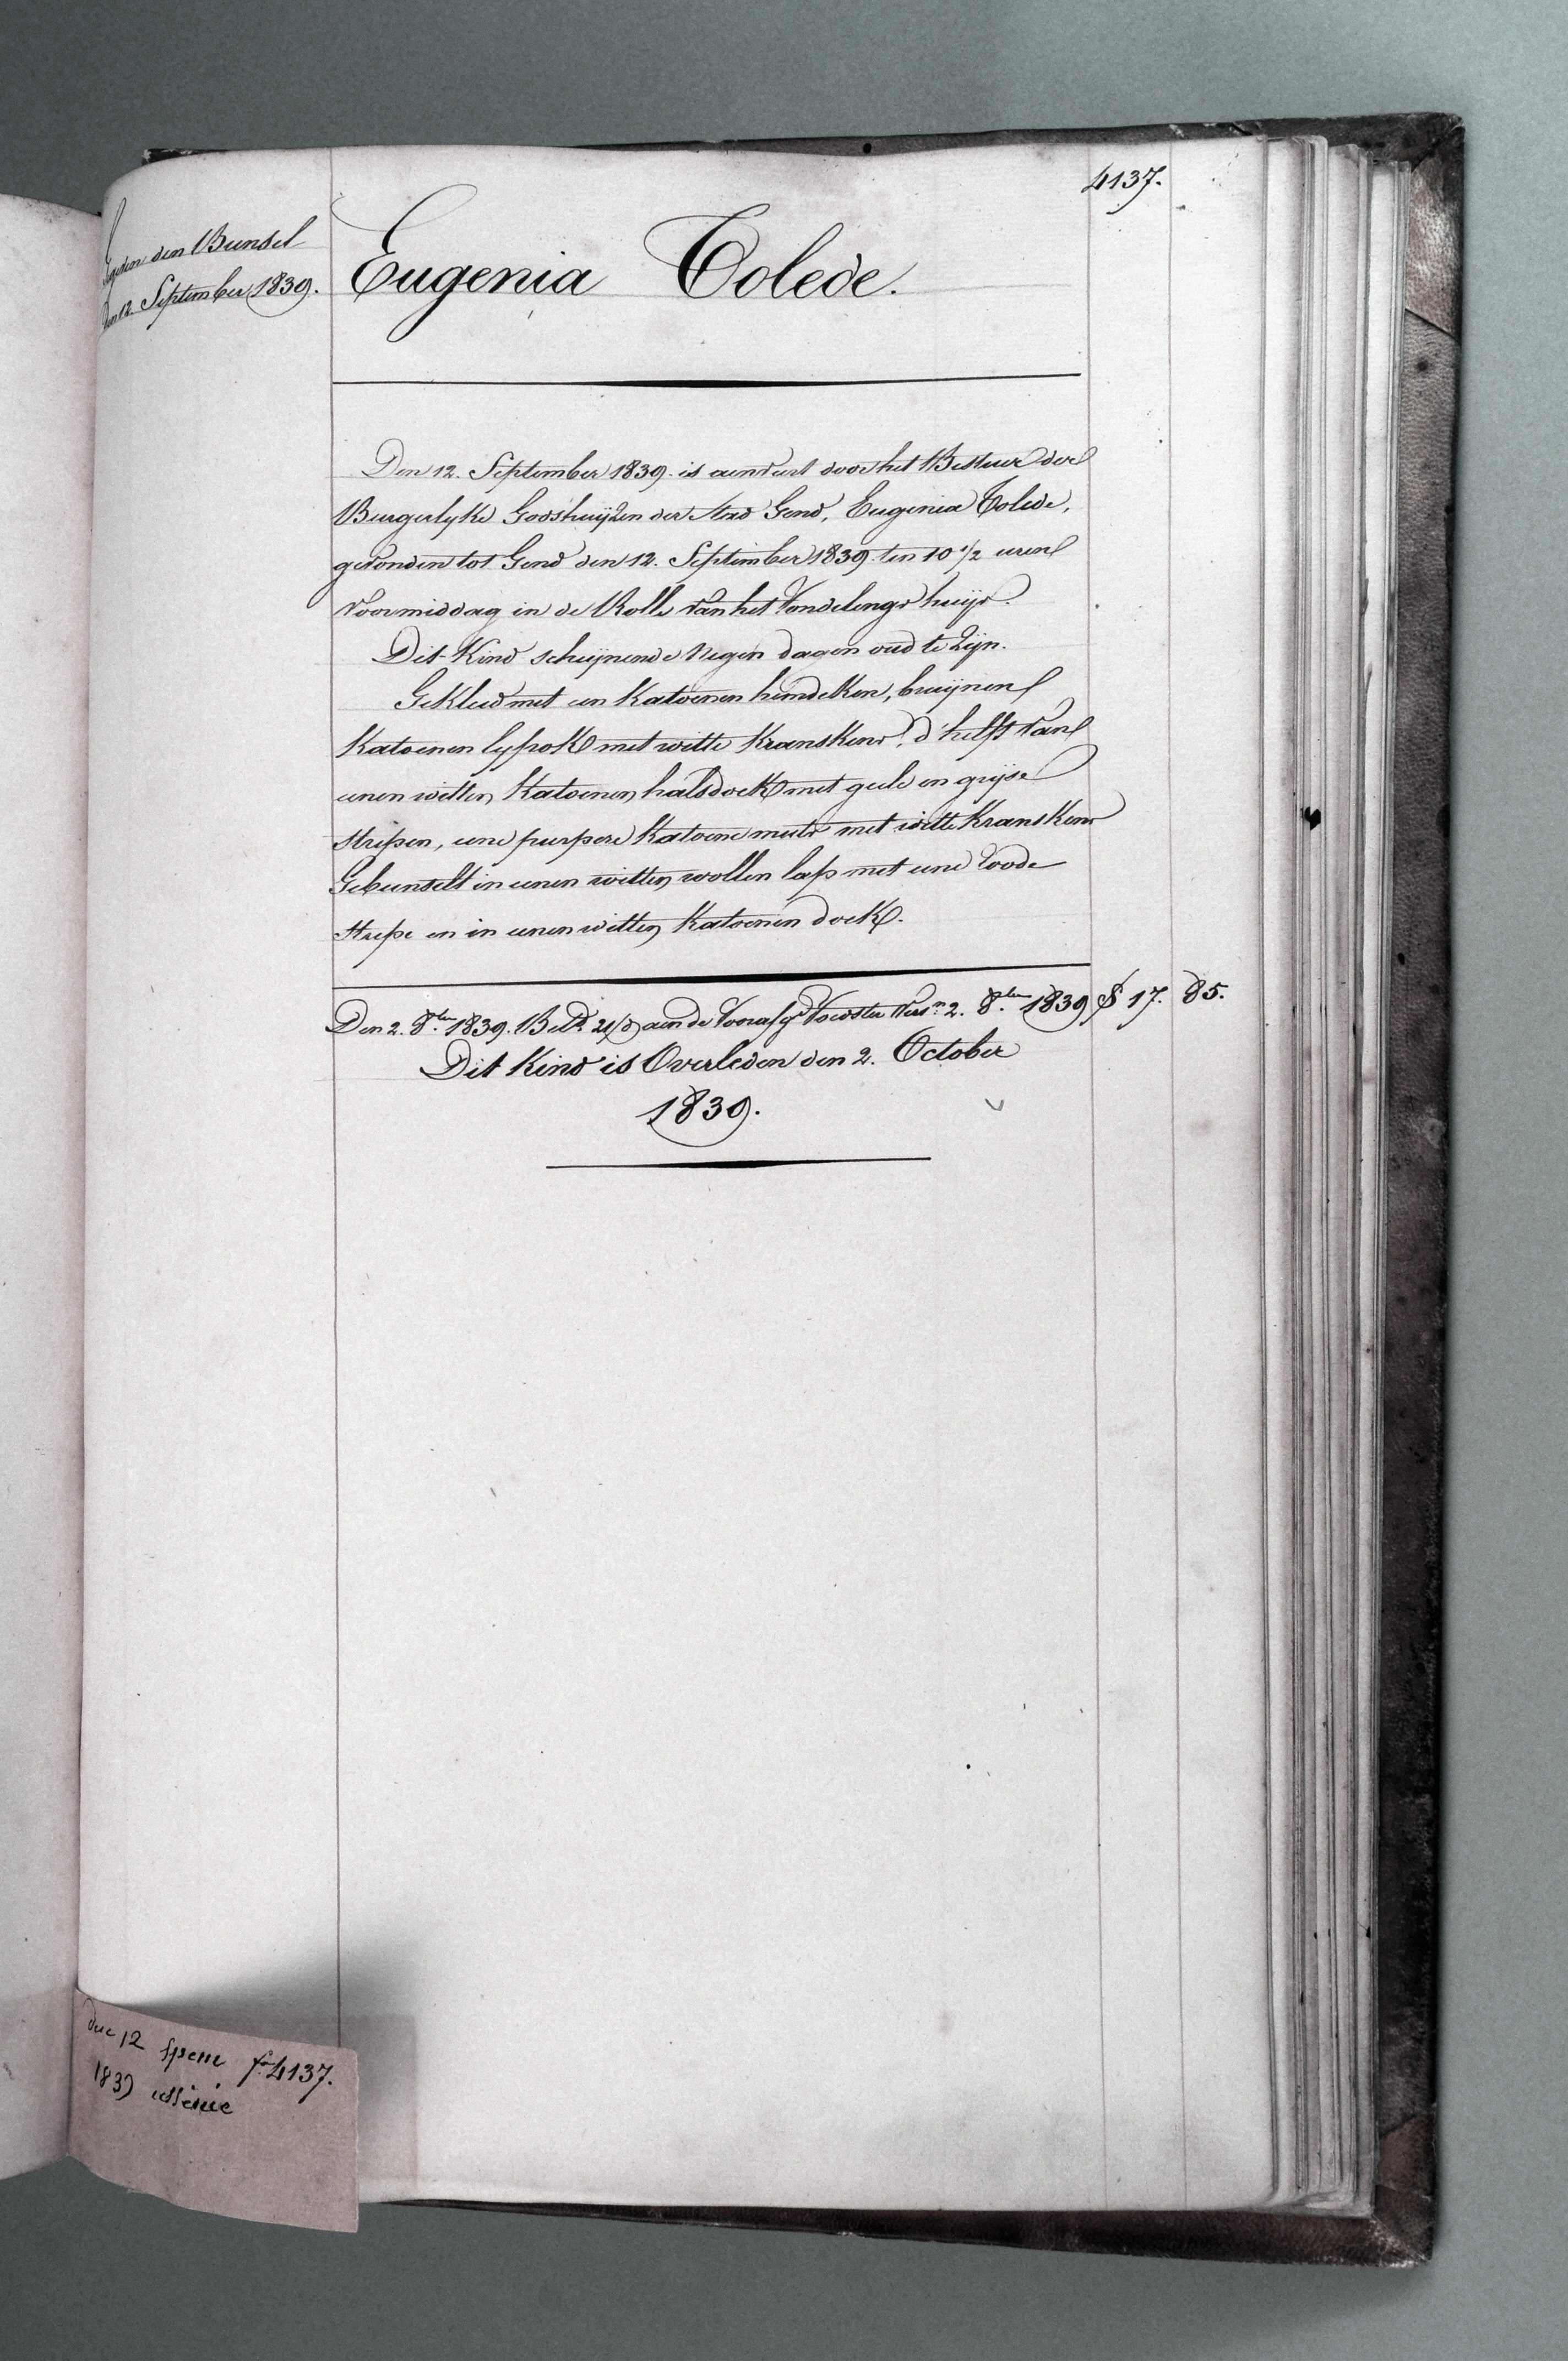 4137.
den Bunsel
September 1839.
Eugenia Tolede.
Den 12. September 1839. is aenveert door het Bestuer der
Burgerlyke Godshuijzen der Stad Gend, Eugenia Tolede,
gevonden tot Gend den 12. September 1839. ten 10 1/2 uren
voormiddag in de Rolle van het Vondelingshuijs.
Dit Kind scheijnende Negen dagen oud te Zijn.
Gekleed met een Katoenen hemdeken, bruijnen
Katoenen lyfrok met witte Kranskens, d'helft van
eenen witten Katoenen halsdoek met geele en grijse
strepen, eene purpere Katoene muts met witte Kranskens
Gebunselt in eenen witten wollen lap met eene Roode
strepe en in eenen witten Katoenen doek.
Den 2. 8.ber 1839. aen de Voedster 2. 8.ber 1839 17. 85.
Dit Kind is Overleden den 2. October
1839.
12 f° 4137.